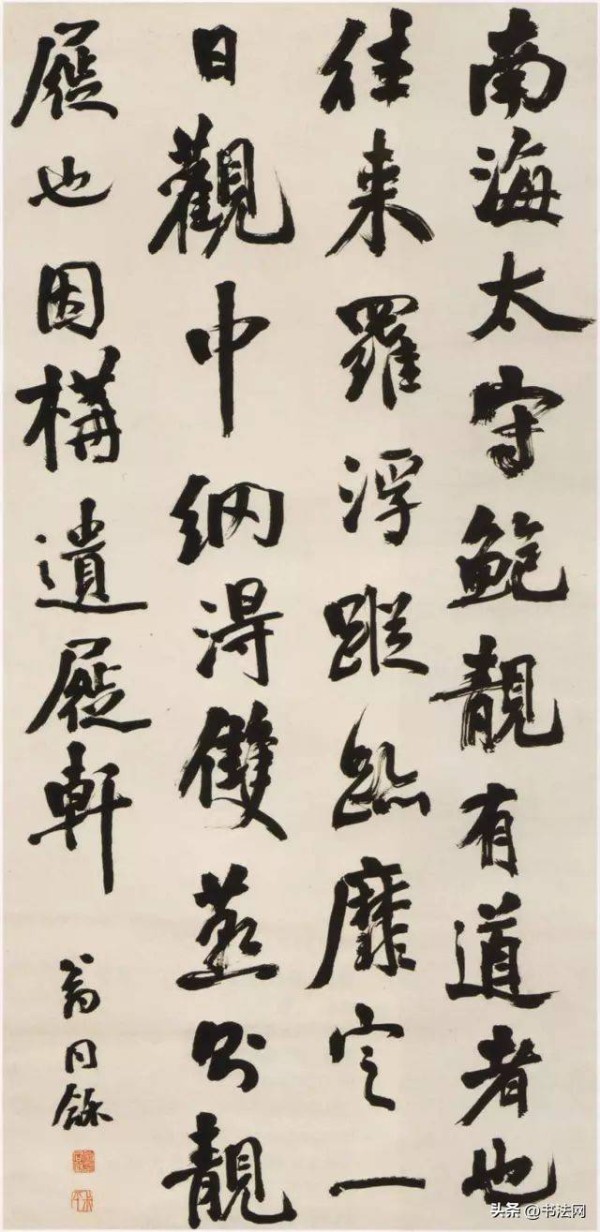 南海太守鮑靚有道者也
往来羅浮蹤跡靡定一
日觀中網得雙燕則靚
屣也因構遺屣軒
翁同龢
头条 @书法网